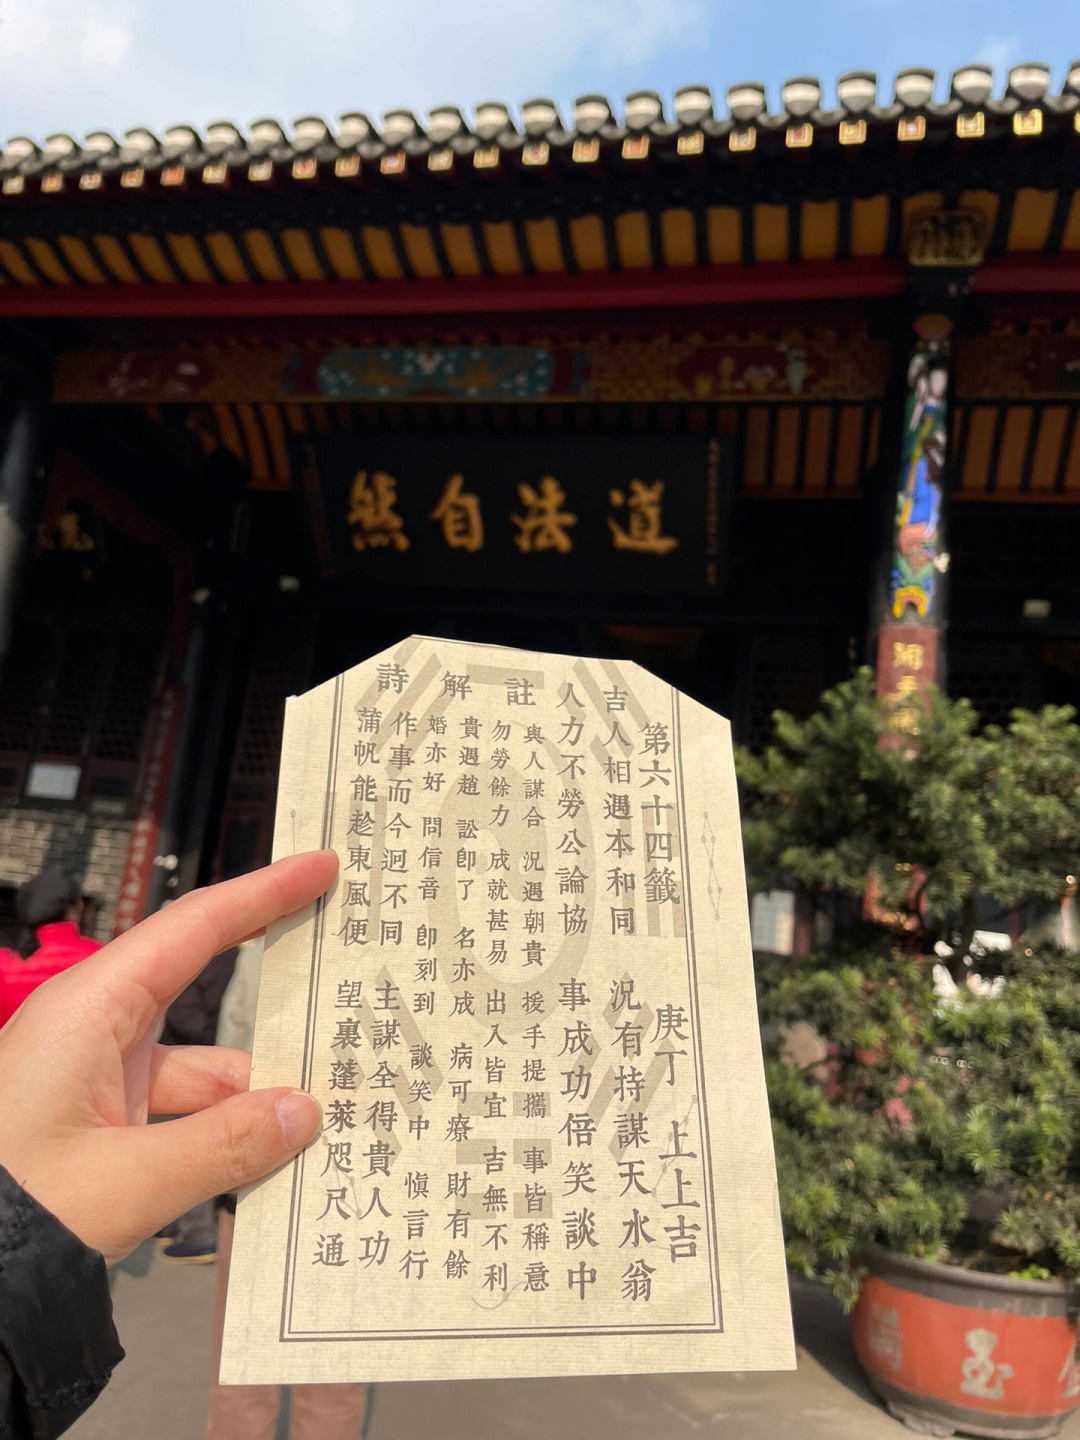 道法自然
第六十四籤 庚丁 上上吉
吉人相遇本和同 況有持謀天水翁
人力不勞公論協 事成功倍笑談中
註 與人謀合 況遇朝貴 援手提攜 事皆稱意
勿勞餘力 成就甚易 出入皆宜 吉無不利
解 貴遇趙 訟即了 名亦成 病可療 財有餘
婚亦好 問信音 即刻到 談笑中 慎言行
詩 作事而今迥不同 主謀全得貴人功
蒲帆能趁東風便 望裏蓬萊咫尺通
玉